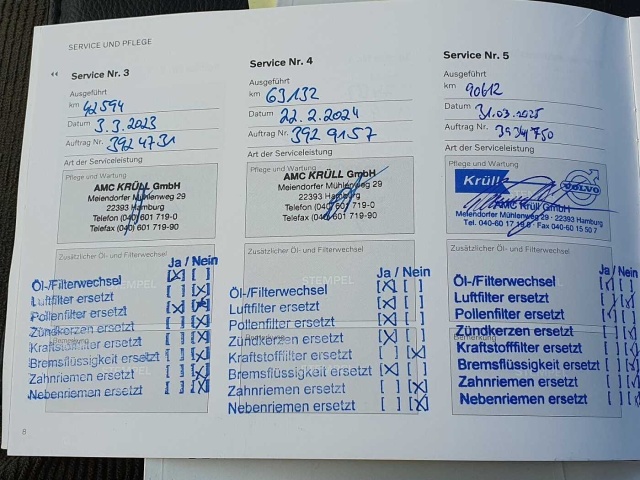 SERVICE UND PFLEGE
Service Nr. 3
Ausgeführt
km 42594
Datum 3.3.2023
Auftrag Nr. 3924731
Art der Serviceleistung
Pflege und Wartung
AMC KRÜLL GmbH
Meiendorfer Mühlenweg 29
22393 Hamburg
Telefon (040) 601 719-0
Telefax (040) 601 719-90
Zusätzlicher Öl- und Filterwechsel
Ja / Nein
Öl-/Filterwechsel [X] [ ]
Luftfilter ersetzt [ ] [X]
Pollenfilter ersetzt [X] [X]
Zündkerzen ersetzt [ ] [X]
Bemerkung
Kraftstofffilter ersetzt [ ] [X]
Bremsflüssigkeit ersetzt [ ] [X]
Zahnriemen ersetzt [ ] [X]
Nebenriemen ersetzt [ ] [X]
8
Service Nr. 4
Ausgeführt
km 63132
Datum 22.2.2024
Auftrag Nr. 392 9157
Art der Serviceleistung
Pflege und Wartung
AMC KRÜLL GmbH
Meiendorfer Mühlenweg 29
22393 Hamburg
Telefon (040) 601 719-0
Telefax (040) 601 719-90
Zusätzlicher Öl- und Filterwechsel
STEMPEL
Ja / Nein
Öl-/Filterwechsel [X] [ ]
Luftfilter ersetzt [X] [ ]
Pollenfilter ersetzt [X] [ ]
Zündkerzen ersetzt [X] [ ]
Kraftstofffilter ersetzt [ ] [X]
Bremsflüssigkeit ersetzt [X] [ ]
Zahnriemen ersetzt [ ] [X]
Nebenriemen ersetzt [ ] [X]
Service Nr. 5
Ausgeführt
km 90612
Datum 31.03.2025
Auftrag Nr.
Art der Serviceleistung
Pflege und Wartung
Krüll!
VOLVO
AMC Krüll GmbH
Meiendorfer Mühlenweg 29 · 22393 Hamburg
Tel. 040-60 17 19 0 · Fax 040-60 15 50 7
Zusätzlicher Öl- und Filterwechsel
Ja / Nein
Öl-/Filterwechsel
Luftfilter ersetzt
Pollenfilter ersetzt
Zündkerzen ersetzt
Bemerkung
Kraftstofffilter ersetzt
Bremsflüssigkeit ersetzt
Zahnriemen ersetzt
Nebenriemen ersetzt